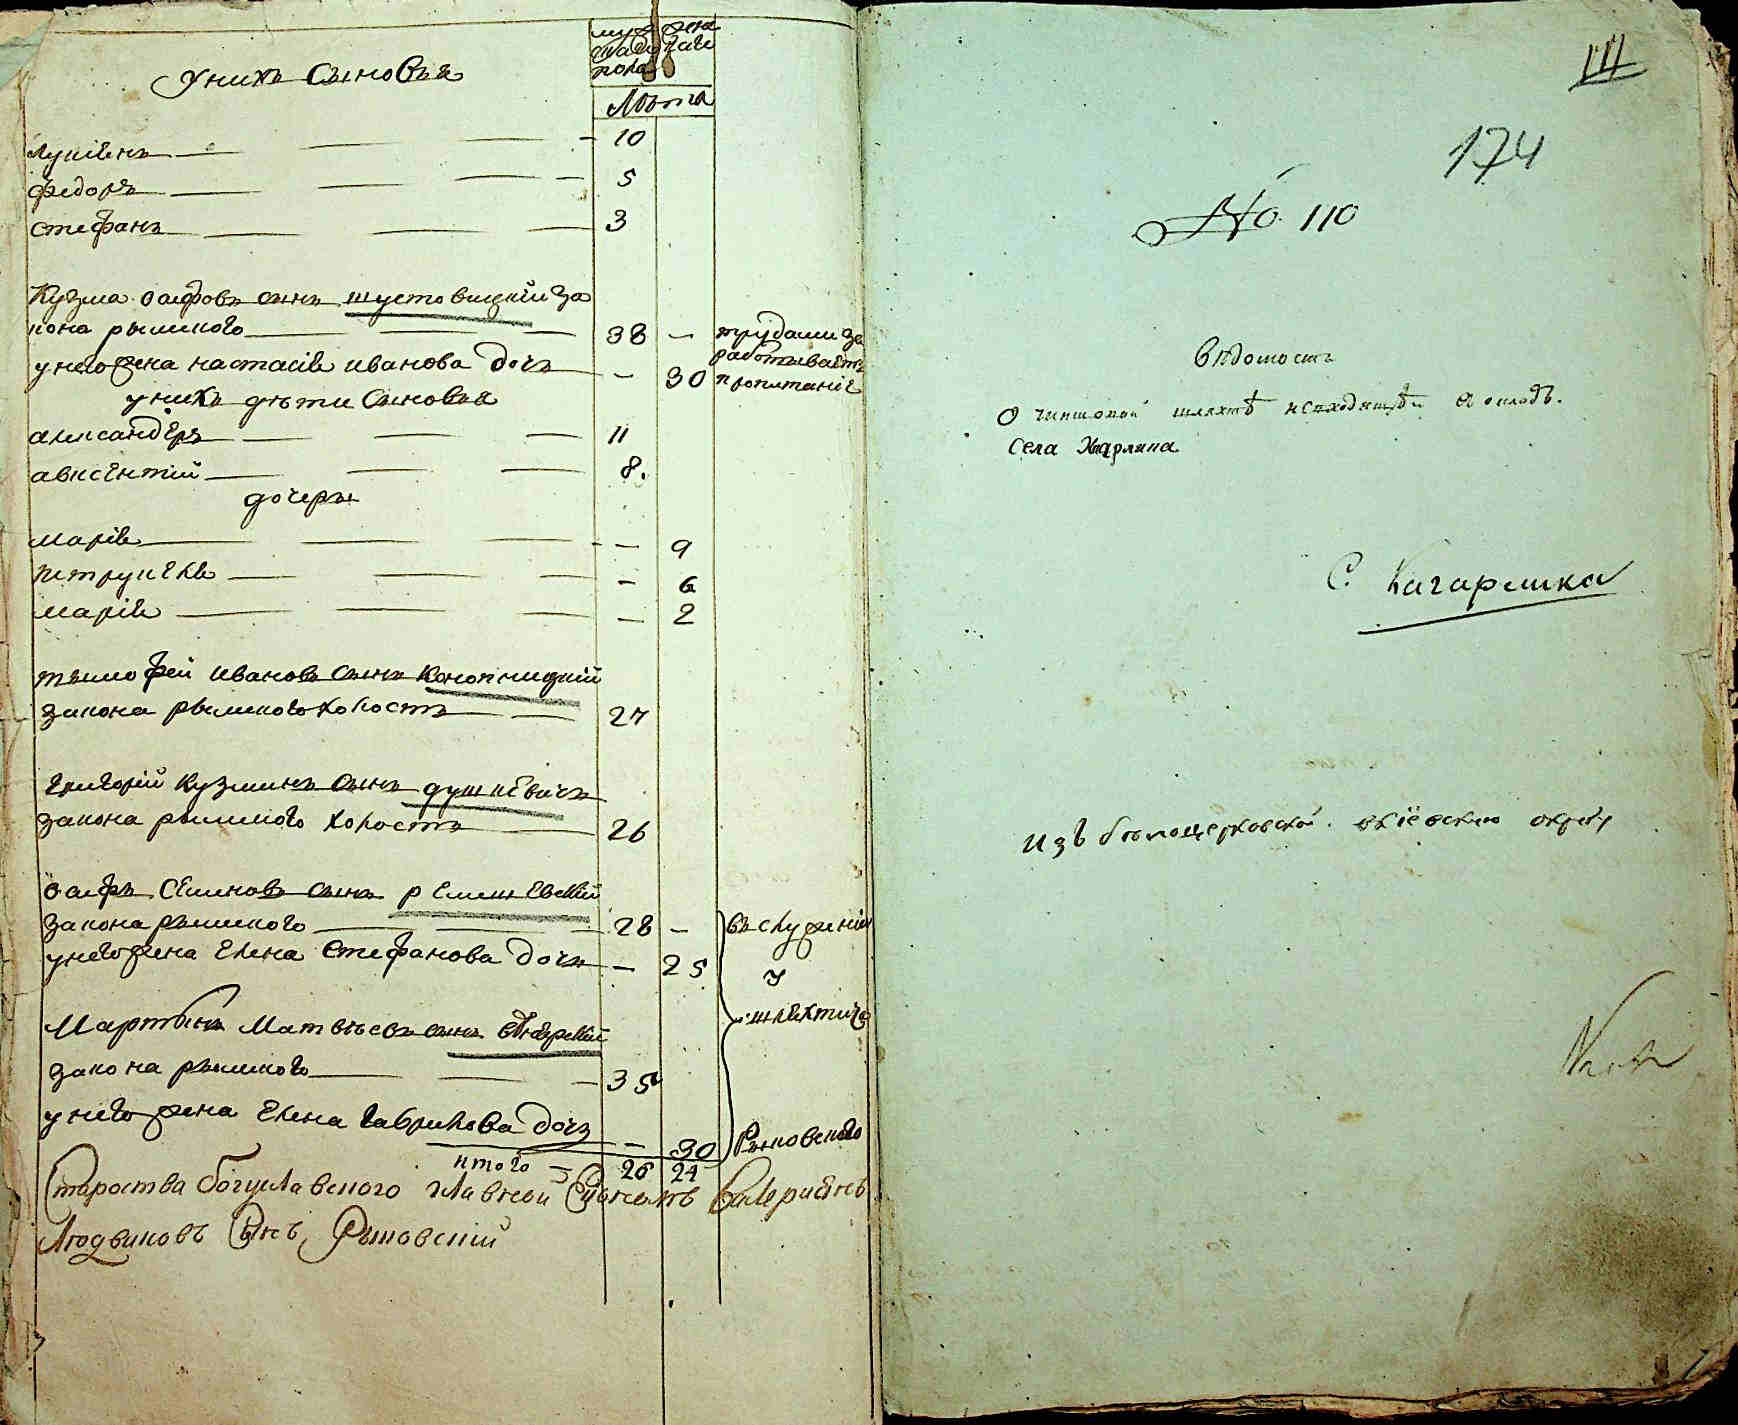 унихъ сыновья
мужеска
женска
пола
Лѣта
Лукіянъ 10
Федоръ 5
Стефанъ 3
Кузма осифовъ сынъ шустовицкій за
кона рымского 38 — трудами за
работываетъ
унего жена настасія иванова дочь — 30 пропитаніе
унихъ дѣти сыновья
александеръ 11
авксентий 8.
дочеры
марія — 9
петрунеля — 6
марія — 2
тымофей Ивановъ сынъ конопницкій
закона рымского холостъ 27
Григорій Кузминъ сынъ душкевичъ
закона рымского холостъ 26
осифъ Семіновъ сынъ ремишевский
закона рымского 28 — въ служеніи
унего жена Елена Стефанова дочь — 25
у
Мартынъ Матвѣевъ сынъ
шляхтича
закона рымского 35
унего жена Елена Гаврилова дочь — 30 Рыковского
итого — 26 24
Староства богуславского главной Валериянъ
Людвиковъ Сынъ Рытовскій
III
174
№ 110
Вѣдомость
О чиншовой шляхтѣ в окладъ.
Села
С. Кагарлика
Изъ бѣлоцерковской вкіевскую округу